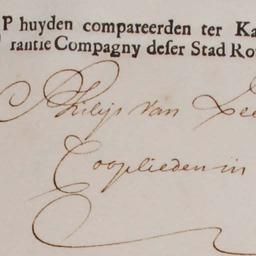 P huyden compareerden ter Ka
rantie Compagny deser Stad Ro
Philijs van Lee
Cooplieden in